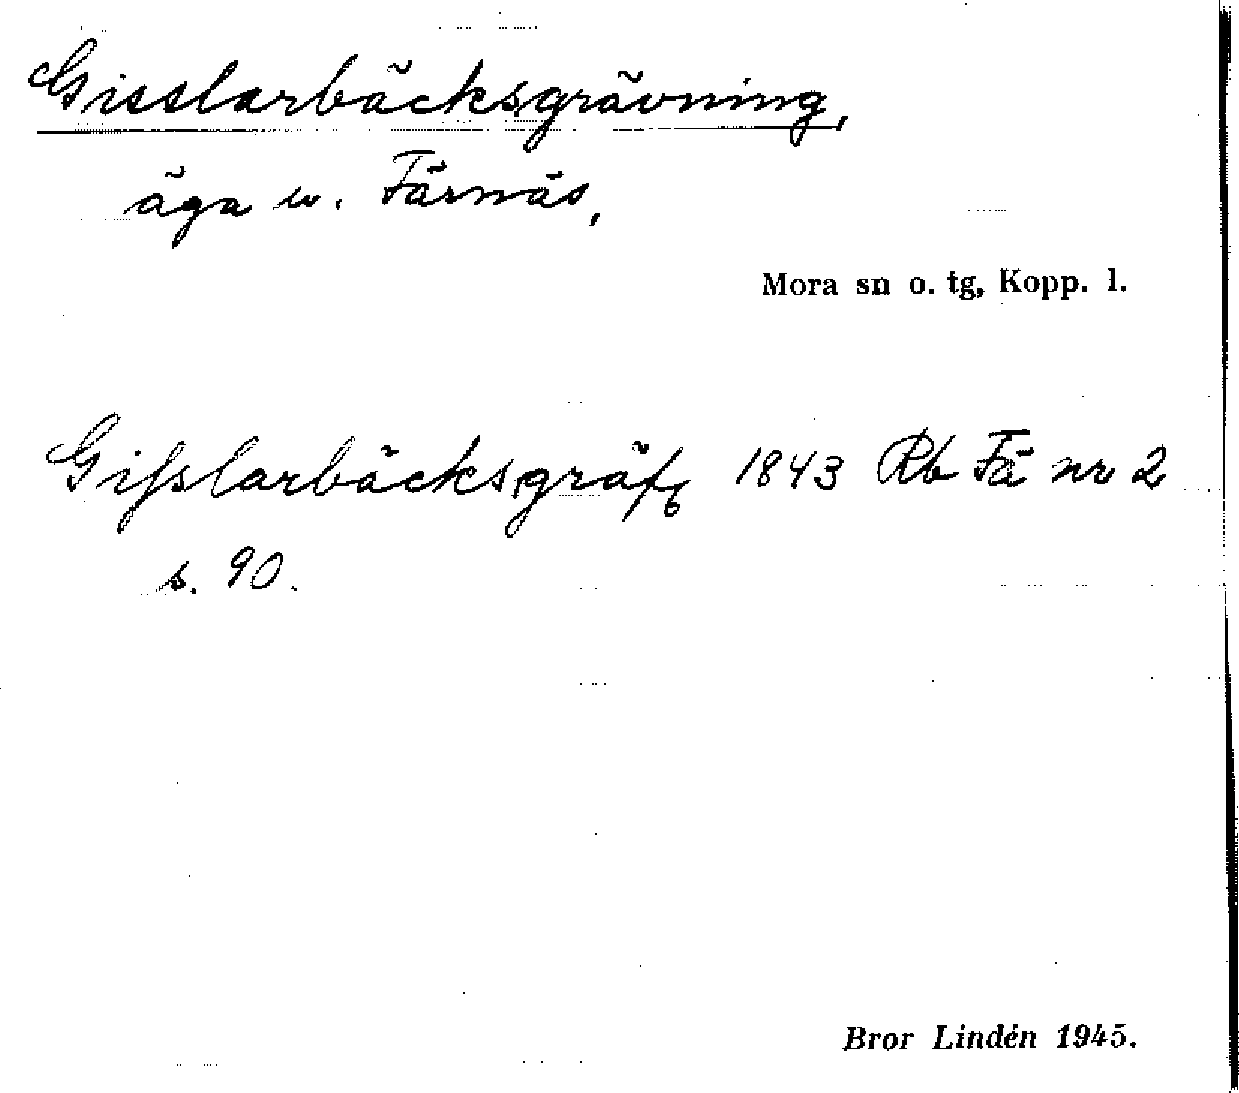 Gisslarbäcksgrävning,
äga w. Färnäs,
Mora sn o. tg, Kopp. l.
Giſslarbäcksgräfg 1843 Rb Fä nr 2
s. 90.
Bror Lindén 1945.